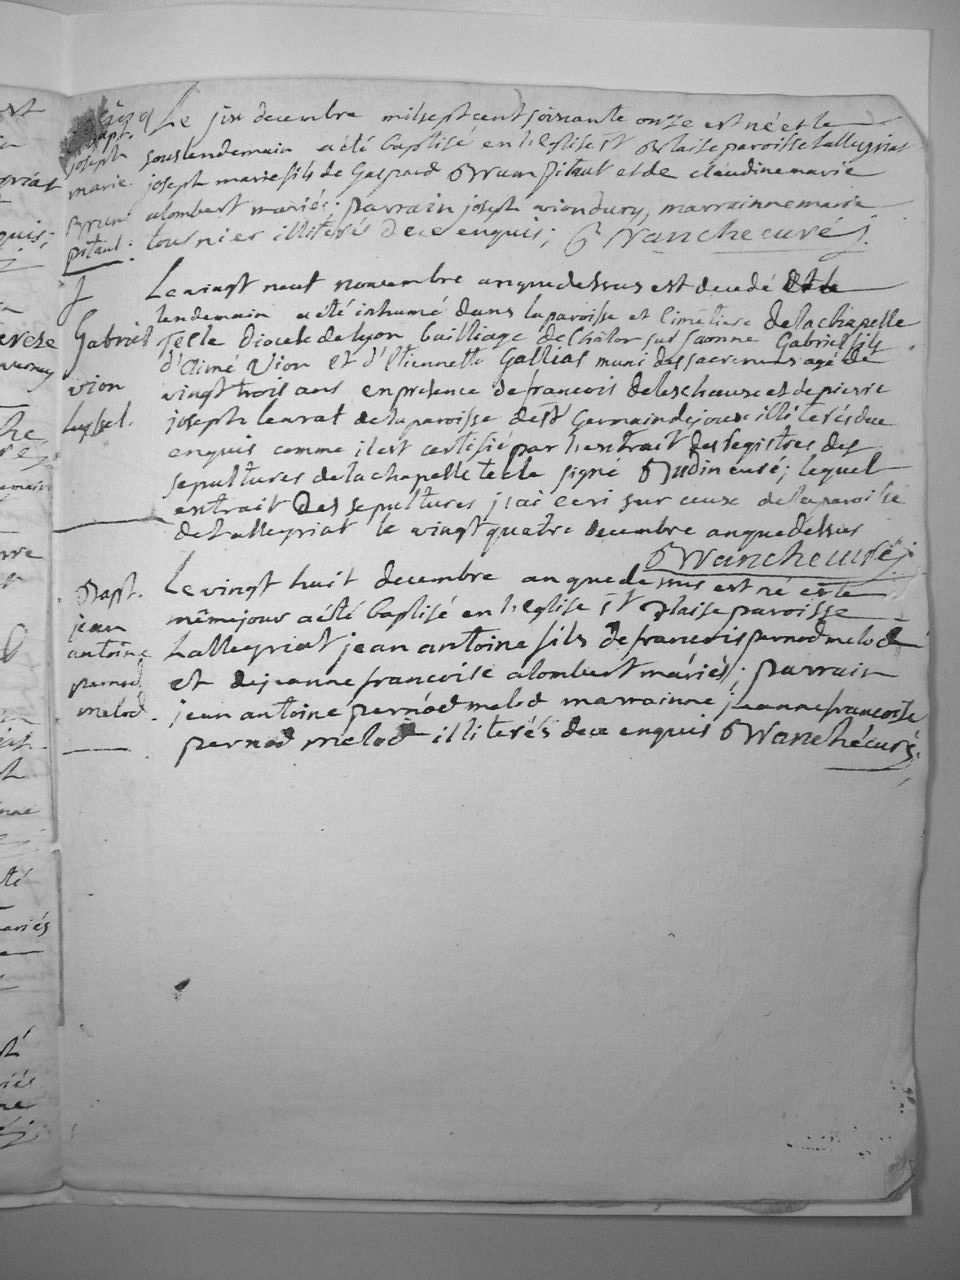 Bapt.
joseph
marie
Brun
pitaut.
Le six decembre mil sept cent soixante onze est né et le
souslendemain a été baptisé en l'eglise St Blaise paroisse Lalleyriat
joseph marie fils de Gaspard Brun pitaut et de claudine marie
alombert mariés; parrain joseph viondury, marrainne marie
tournier illiterés de ce enquis; Blanche curé
Gabriel
vion
Le vingt neuf novembre an que dessus est decedé et le
lendemain a été inhumé dans la paroisse et cimetiere de la chapelle
Tecle Diocese de Lyon bailliage de Châlon sur saonne Gabriel fils
d'Aimé Vion et d'Etiennette Gallias muni des sacremens agé de
vingt trois ans en presence de francois deleschaux et de pierre
joseph leurat de la paroisse de St Germain de joux illiterés de ce
enquis comme il est certifié par l'extrait des registres des
sepultures de la chapelle tecle signé curé; lequel
extrait des sepultures j'ai ecri sur ceux de la paroisse
de Lalleyriat le vingt quatre decembre an que dessus
Blanche curé
Bapt.
jean
antoine
pernod
melod.
Le vingt huit decembre an que dessus est né et le
même jour a été baptisé en l'eglise St Blaise paroisse
Lalleyriat jean antoine fils de francois pernod melod
et de jeanne francoise alombert mariés; parrain
jean antoine pernod melod marrainne jeanne francoise
pernod melod illiterés de ce enquis Blanche curé